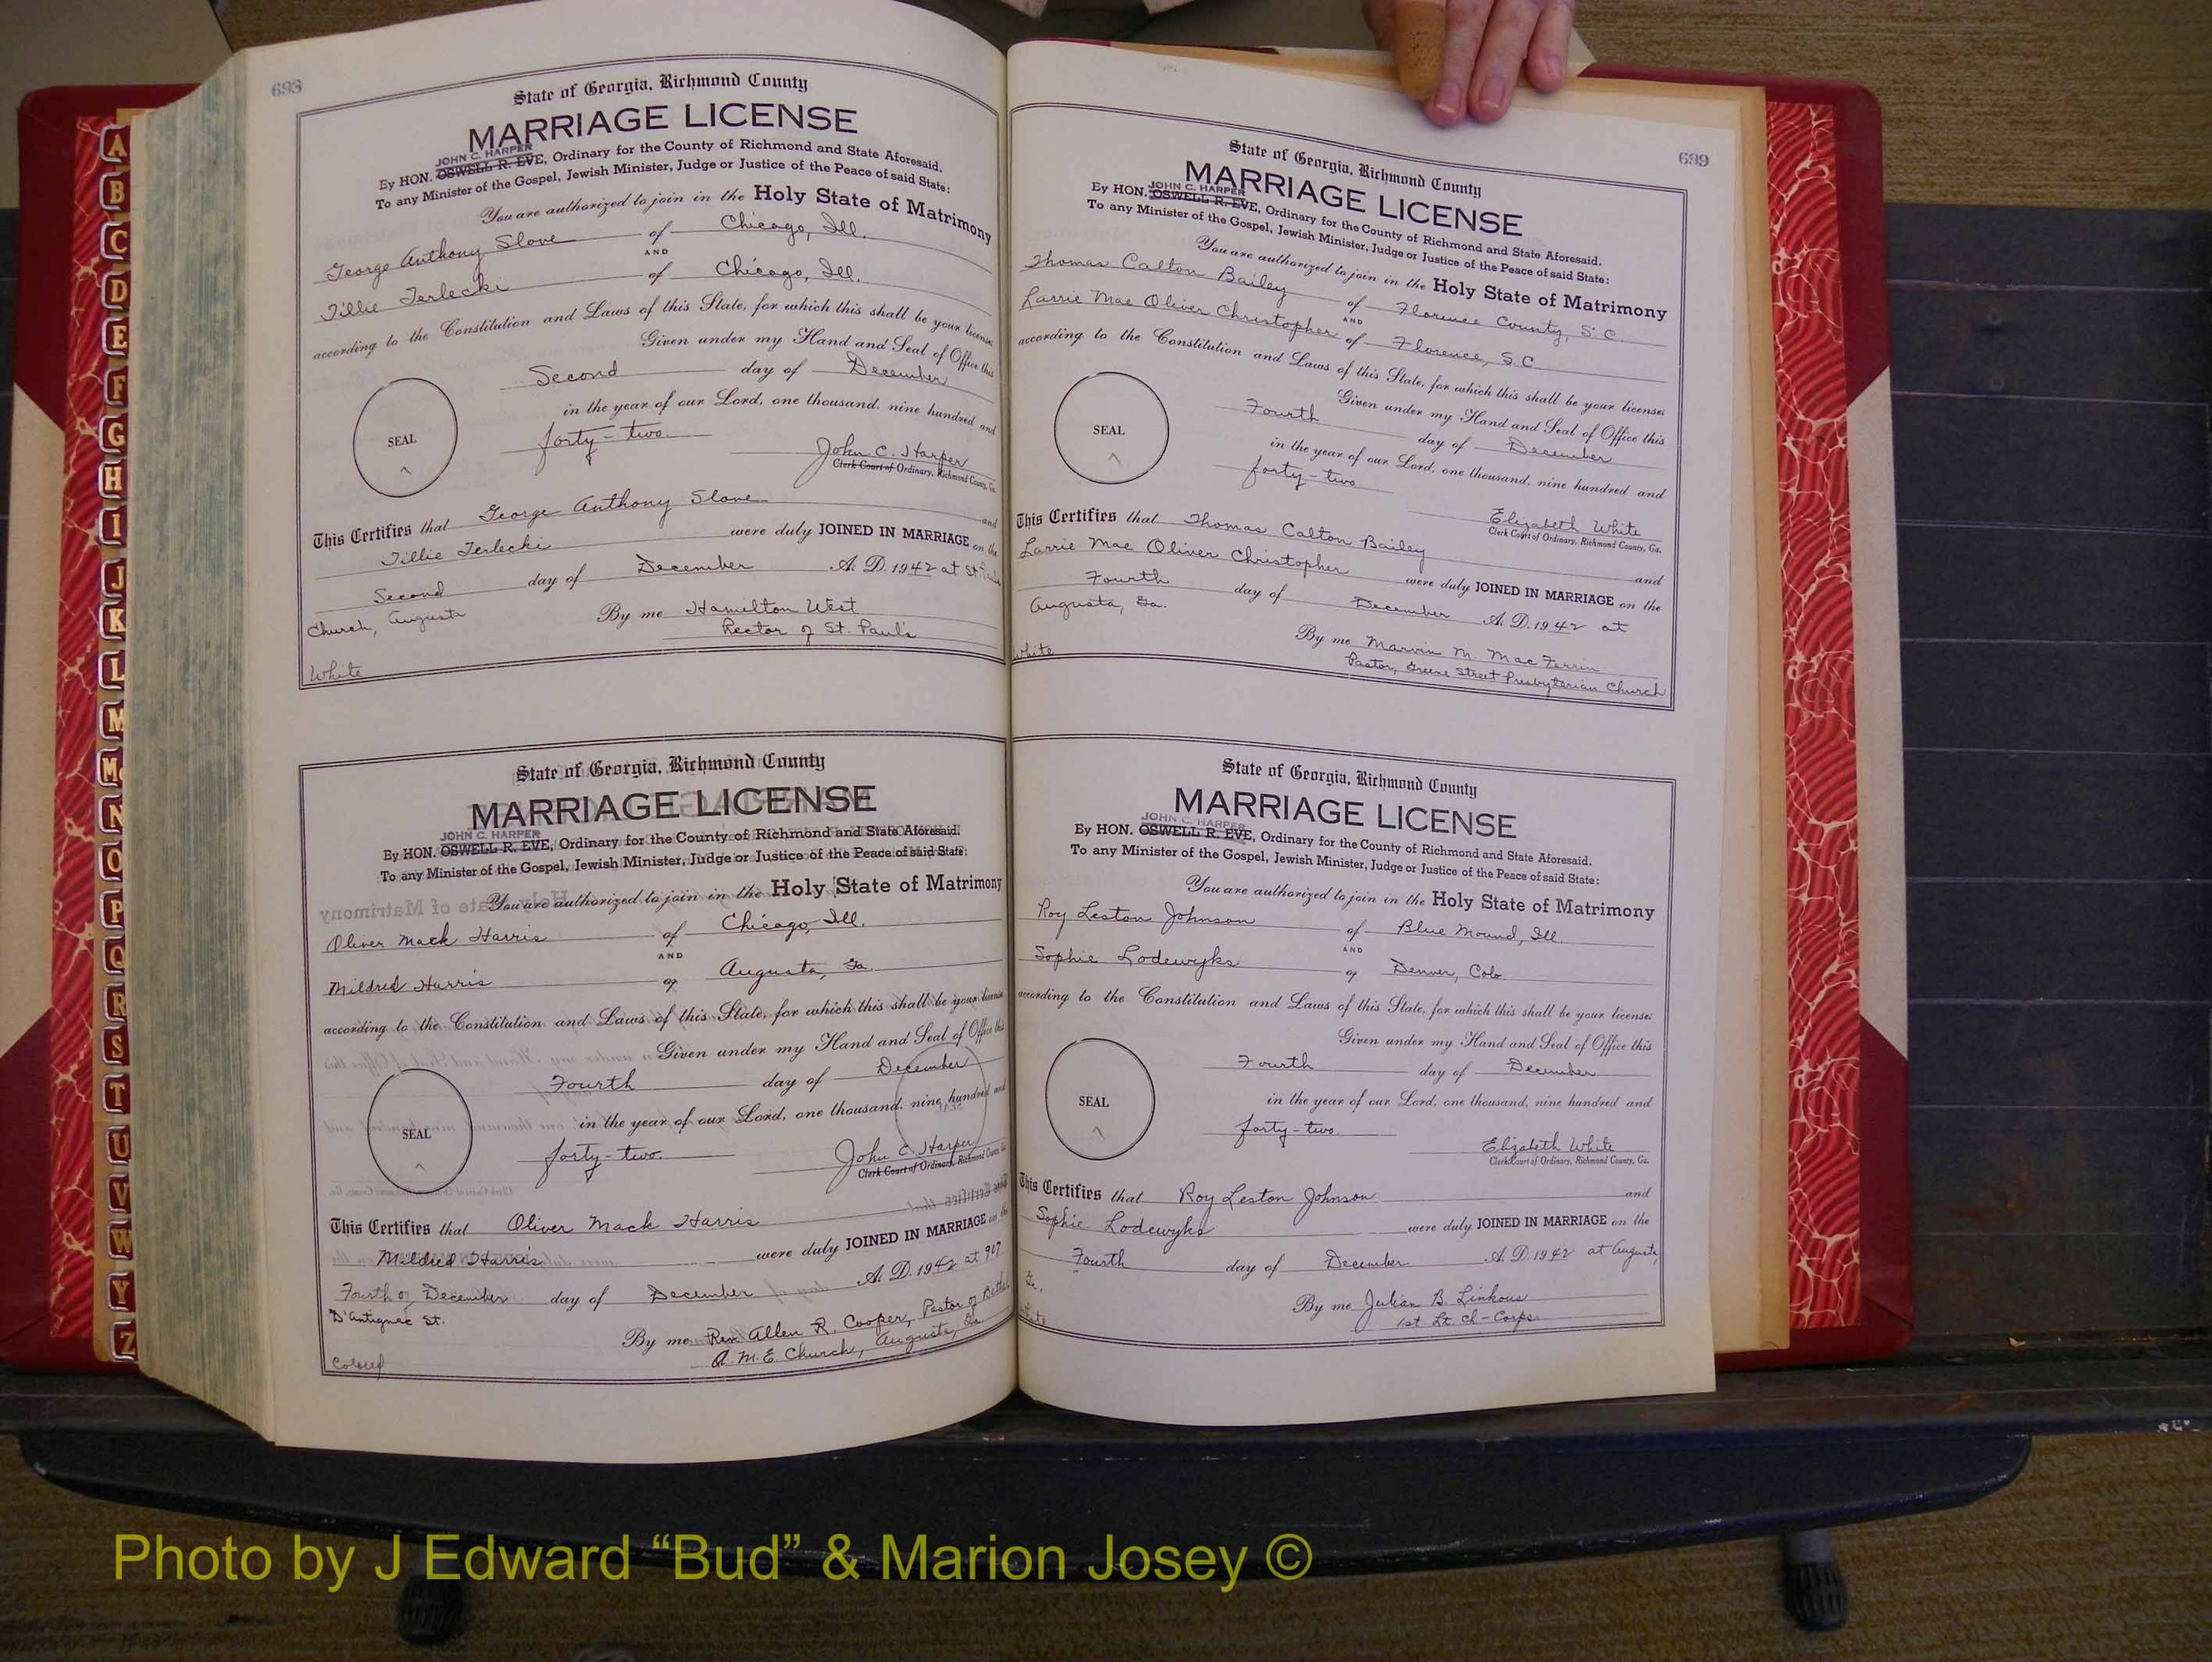 698
State of Georgia, Richmond County
MARRIAGE LICENSE
JOHN C. HARPER
By HON. OSWELL R. EVE, Ordinary for the County of Richmond and State Aforesaid.
To any Minister of the Gospel, Jewish Minister, Judge or Justice of the Peace of said State:
You are authorized to join in the Holy State of Matrimony
George Anthony Slove of Chicago, Ill.
AND
Tillie Terlecki of Chicago, Ill.
according to the Constitution and Laws of this State, for which this shall be your license
Given under my Hand and Seal of Office this
Second day of December
in the year of our Lord, one thousand, nine hundred and
SEAL
forty-two
John C. Harper
Clerk Court of Ordinary, Richmond County, Ga.
This Certifies that George Anthony Slove and
Tillie Terlecki were duly JOINED IN MARRIAGE on the
Second day of December A. D. 1942 at St. Paul's
Church, Augusta By me Hamilton West
Rector of St. Paul's
White
State of Georgia, Richmond County
MARRIAGE LICENSE
JOHN C. HARPER
By HON. OSWELL R. EVE, Ordinary for the County of Richmond and State Aforesaid.
To any Minister of the Gospel, Jewish Minister, Judge or Justice of the Peace of said State:
You are authorized to join in the Holy State of Matrimony
Oliver Mack Harris of Chicago, Ill.
AND
Mildred Harris of Augusta, Ga.
according to the Constitution and Laws of this State, for which this shall be your license
Given under my Hand and Seal of Office this
Fourth day of December
in the year of our Lord, one thousand, nine hundred and
SEAL
forty-two
John C. Harper
Clerk Court of Ordinary, Richmond County, Ga.
This Certifies that Oliver Mack Harris
Mildred Harris were duly JOINED IN MARRIAGE on the
Fourth of December day of December A. D. 1942 at 907
D'Antignac St.
By me Rev. Allen R. Cooper, Pastor of Bethel
A. M. E. Church, Augusta, Ga
Colored
699
State of Georgia, Richmond County
MARRIAGE LICENSE
JOHN C. HARPER
By HON. OSWELL R. EVE, Ordinary for the County of Richmond and State Aforesaid.
To any Minister of the Gospel, Jewish Minister, Judge or Justice of the Peace of said State:
You are authorized to join in the Holy State of Matrimony
Thomas Calton Bailey of Florence County, S. C.
AND
Larrie Mae Oliver Christopher of Florence, S. C.
according to the Constitution and Laws of this State, for which this shall be your license
Given under my Hand and Seal of Office this
Fourth day of December
in the year of our Lord, one thousand, nine hundred and
SEAL
forty-two
Elizabeth White
Clerk Court of Ordinary, Richmond County, Ga.
This Certifies that Thomas Calton Bailey and
Larrie Mae Oliver Christopher were duly JOINED IN MARRIAGE on the
Fourth day of December A. D. 1942 at
Augusta, Ga.
By me Marvin M. Mac Ferrin
Pastor, Greene Street Presbyterian Church
White
State of Georgia, Richmond County
MARRIAGE LICENSE
JOHN C. HARPER
By HON. OSWELL R. EVE, Ordinary for the County of Richmond and State Aforesaid.
To any Minister of the Gospel, Jewish Minister, Judge or Justice of the Peace of said State:
You are authorized to join in the Holy State of Matrimony
Roy Leston Johnson of Blue Mound, Ill.
AND
Sophie Lodewyks of Denver, Colo.
according to the Constitution and Laws of this State, for which this shall be your license
Given under my Hand and Seal of Office this
Fourth day of December
in the year of our Lord, one thousand, nine hundred and
SEAL
forty-two
Elizabeth White
Clerk Court of Ordinary, Richmond County, Ga.
This Certifies that Roy Leston Johnson and
Sophie Lodewyks were duly JOINED IN MARRIAGE on the
Fourth day of December A. D. 1942 at Augusta,
Ga.
By me Julian B. Linkous
1st Lt. Ch-Corps
White
A
B
C
D
E
F
G
H
I
J
K
L
M
Mc
N
O
P
Q
R
S
T
U
V
W
Y
Z
Photo by J Edward “Bud” & Marion Josey ©